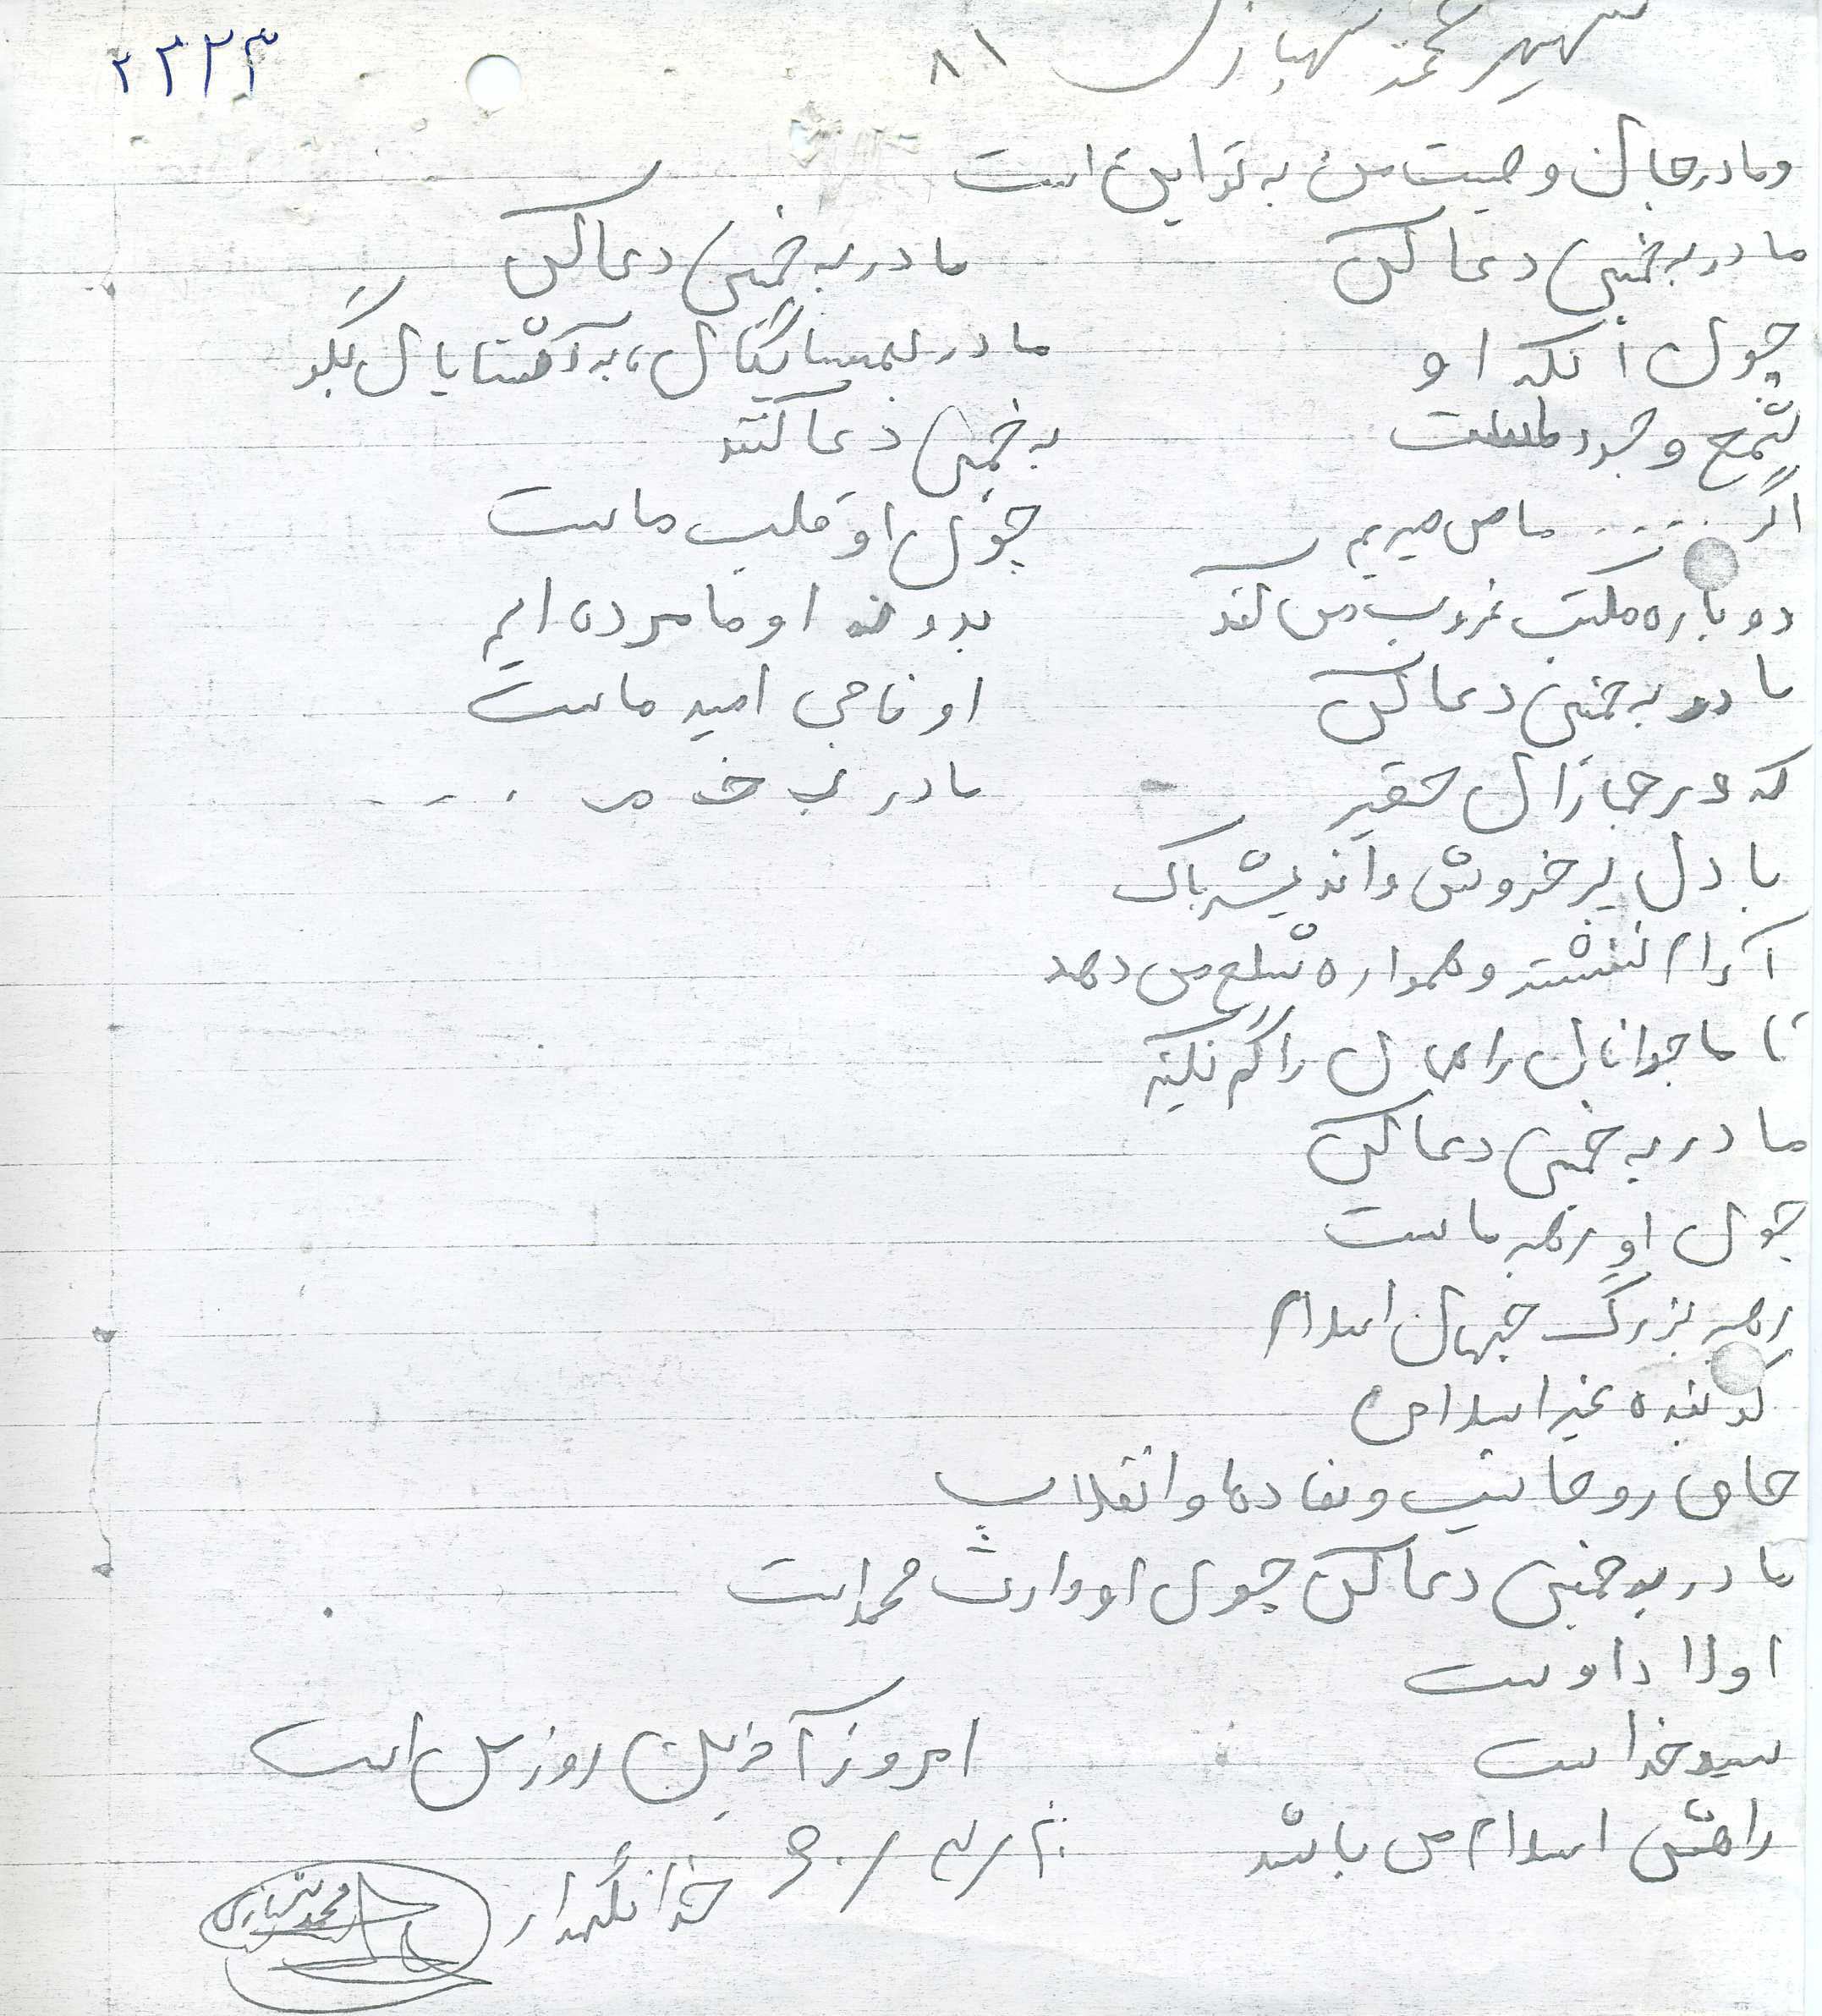 ۲۲۲۳
شهید محمد شهبازی ۸۱
ومادرجان وصیت من به تو این است
مادر به خمینی دعا کن
مادر به خمینی دعا کن
چون آنکه او
مادر به همسایگان، به آشنایان بگو
شمع وجود ماست
به خمینی دعا کنند
اگر ..... ما می میریم
چون او قلب ماست
دوباره مکتب غروب می کند
بدون او ما مرده ایم
مادر به خمینی دعا کن
او ناجی امید ماست
که در جمازان حقیر
مادر به خ م ....
با دل پرخروش و اندیشه پاک
آرام ننشسته و همواره تبلیغ می دهد
تا ما جوانان راهمان را گم نکنیم
مادر به خمینی دعا کن
چون او رهبر ماست
رهبر بزرگ جهان اسلام
کوبنده غیر اسلامی
حامی روحانیت و نهادها و انقلاب
مادر به خمینی دعا کن چون او وارث محمد است
اولاد اوست
سید خداست
امروز آخرین روز من است
راهش اسلام می باشد
خدانگهدار
محمد شهبازی